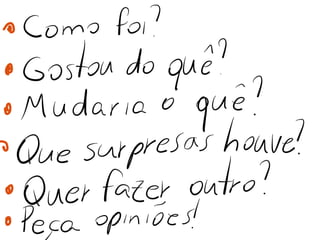 Como foi?
Gostou do quê?
Mudaria o quê?
Que surpresas houve?
Quer fazer outro?
Peça opiniões!